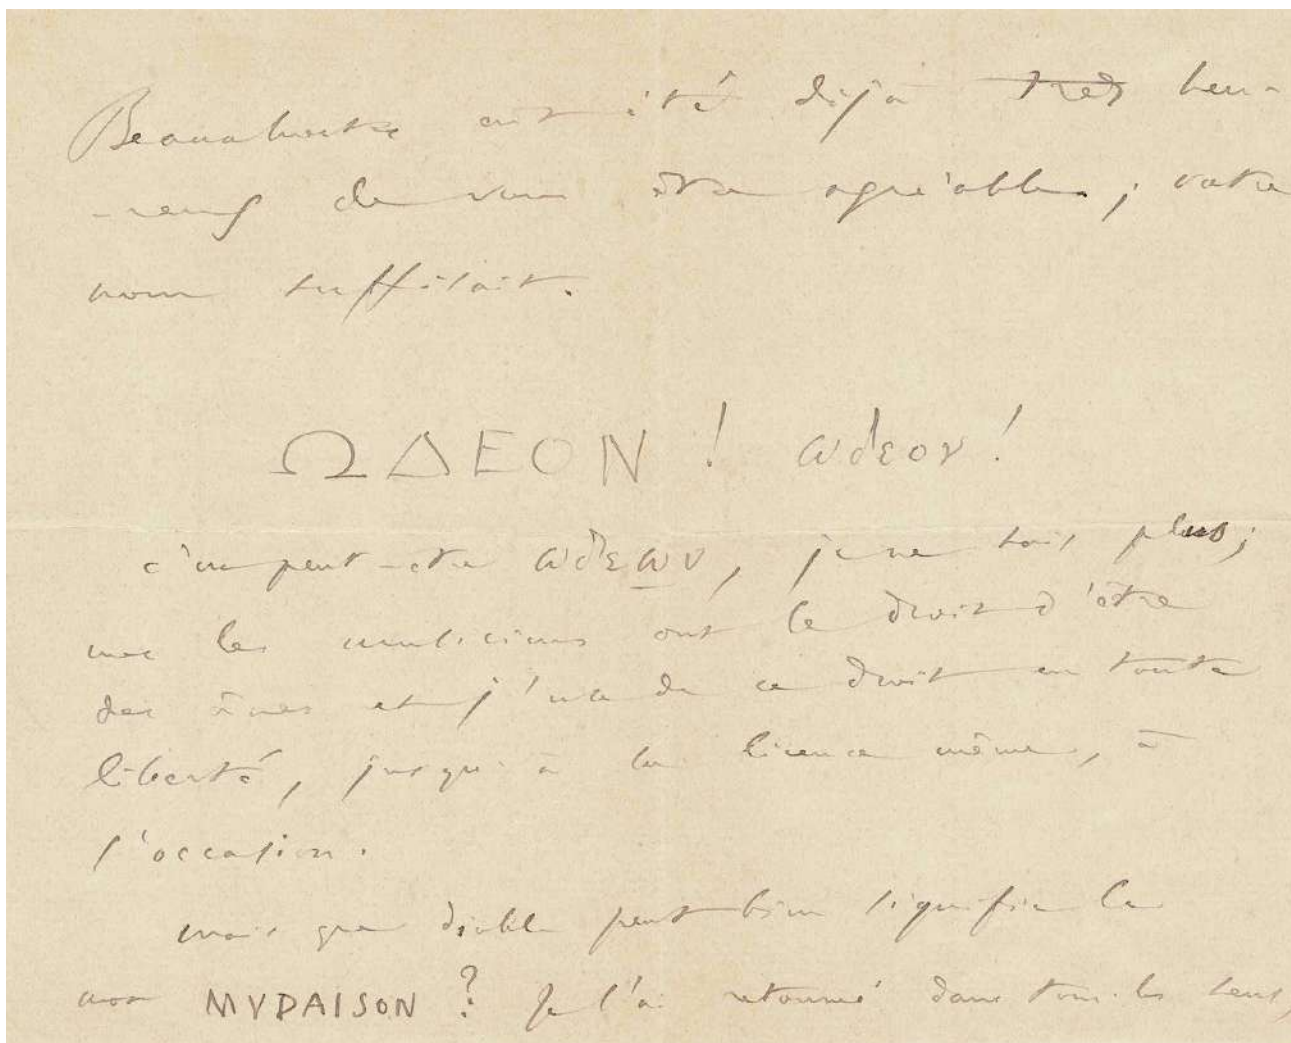 eut été déjà ~~très~~ heu-
-reux de vous être agréable ; votre
nom suffisait.
ΩΔΕΟΝ ! ωδεον !
c'est peut-être ωδεων, je ne sais plus ;
mes les musiciens ont le droit d'être
des ânes et j'use de ce droit en toute
liberté, jusqu'à la licence même, à
l'occasion.
mais que diable peut bien signifier le
mot MVDAISON ? Je l'ai retourné dans tous les sens,